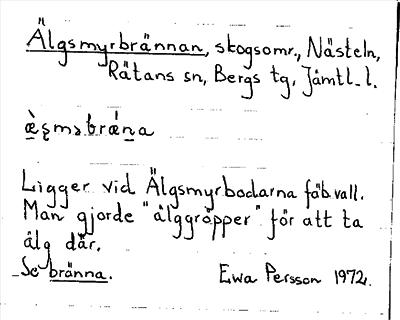 Älgsmyrbrännan, skogsomr., Nästeln,
Rätans sn, Bergs tg, Jämtl. l.
Ligger vid Älgsmyrbodarna fäbvall.
Man gjorde "älggröpper" för att ta
älg där.
Se bränna.
Ewa Persson 1972.